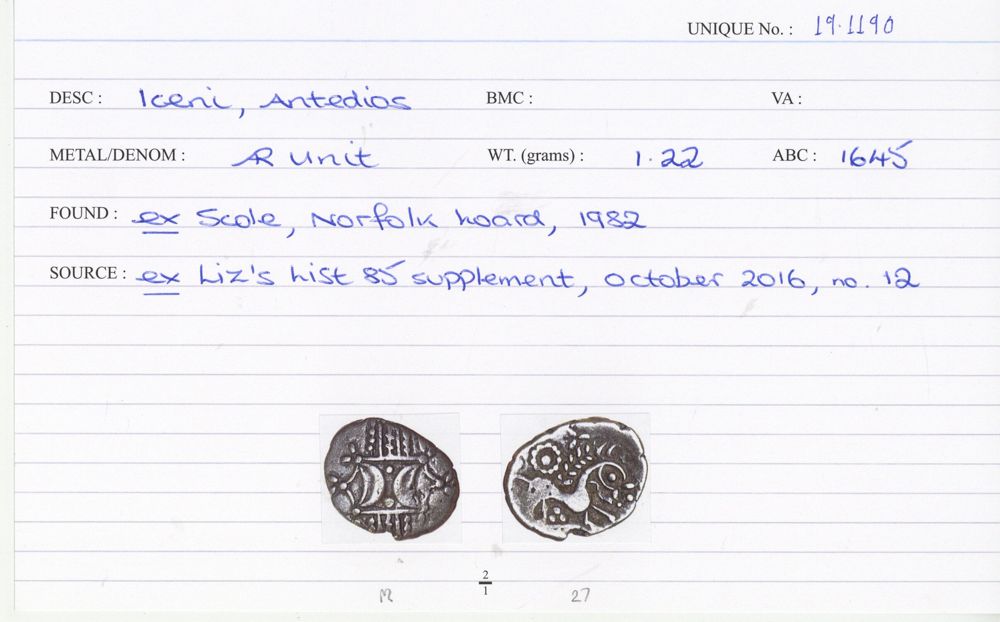 UNIQUE No. : 19.1190
DESC : Iceni, Antedios BMC : VA :
METAL/DENOM : AR Unit WT. (grams) : 1.22 ABC : 1645
FOUND : ex Scole, Norfolk hoard, 1982
SOURCE : ex Liz's list 85 supplement, October 2016, no. 12
2
1
M 27